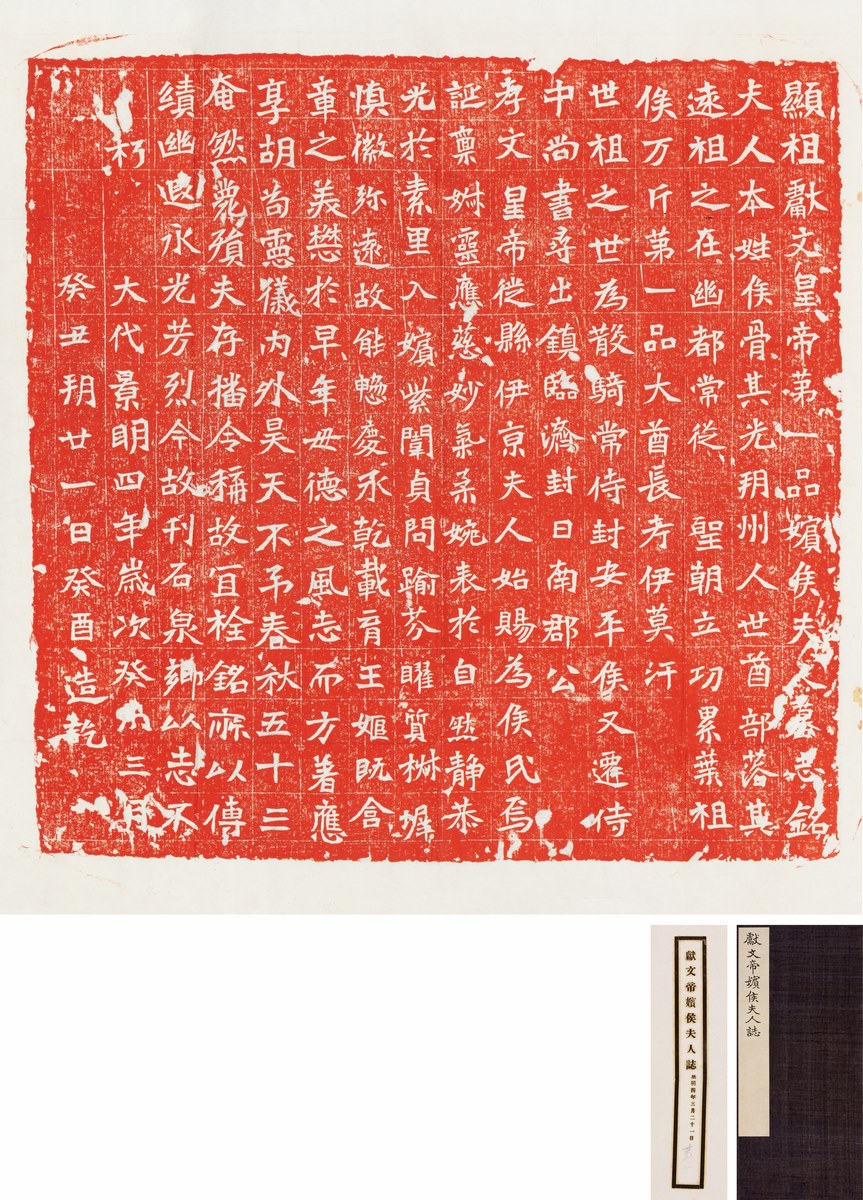 顯祖獻文皇帝第一品嬪侯夫人墓志銘
夫人本姓侯骨其先朔州人世酋部落其
遠祖之在幽都常從聖朝立功累葉祖
俟万斤第一品大酋長考伊莫汗
世祖之世為散騎常侍封安平侯又遷侍
中尚書尋出鎮臨濟封日南郡公
孝文皇帝徙縣伊京夫人始賜為侯氏焉
誕稟婀靈應慈妙氣柔婉表於自然靜恭
光於素里入嬪紫闈貞問踰芬曜質椒墀
慎徽弥遠故能惣慶承乾載育王姬既含
章之美懋於早年毋德之風志而方著應
享胡耇靈儀內外昊天不弔春秋五十三
奄然薨殞夫存播令稱故宜栓銘亦以傳
績幽遐永光芳烈今故刊石泉鄉以志不
朽大代景明四年歲次癸三月
癸丑朔廿一日癸酉造訖
獻文帝嬪侯夫人誌景明四年三月二十一日
獻文帝嬪侯夫人誌